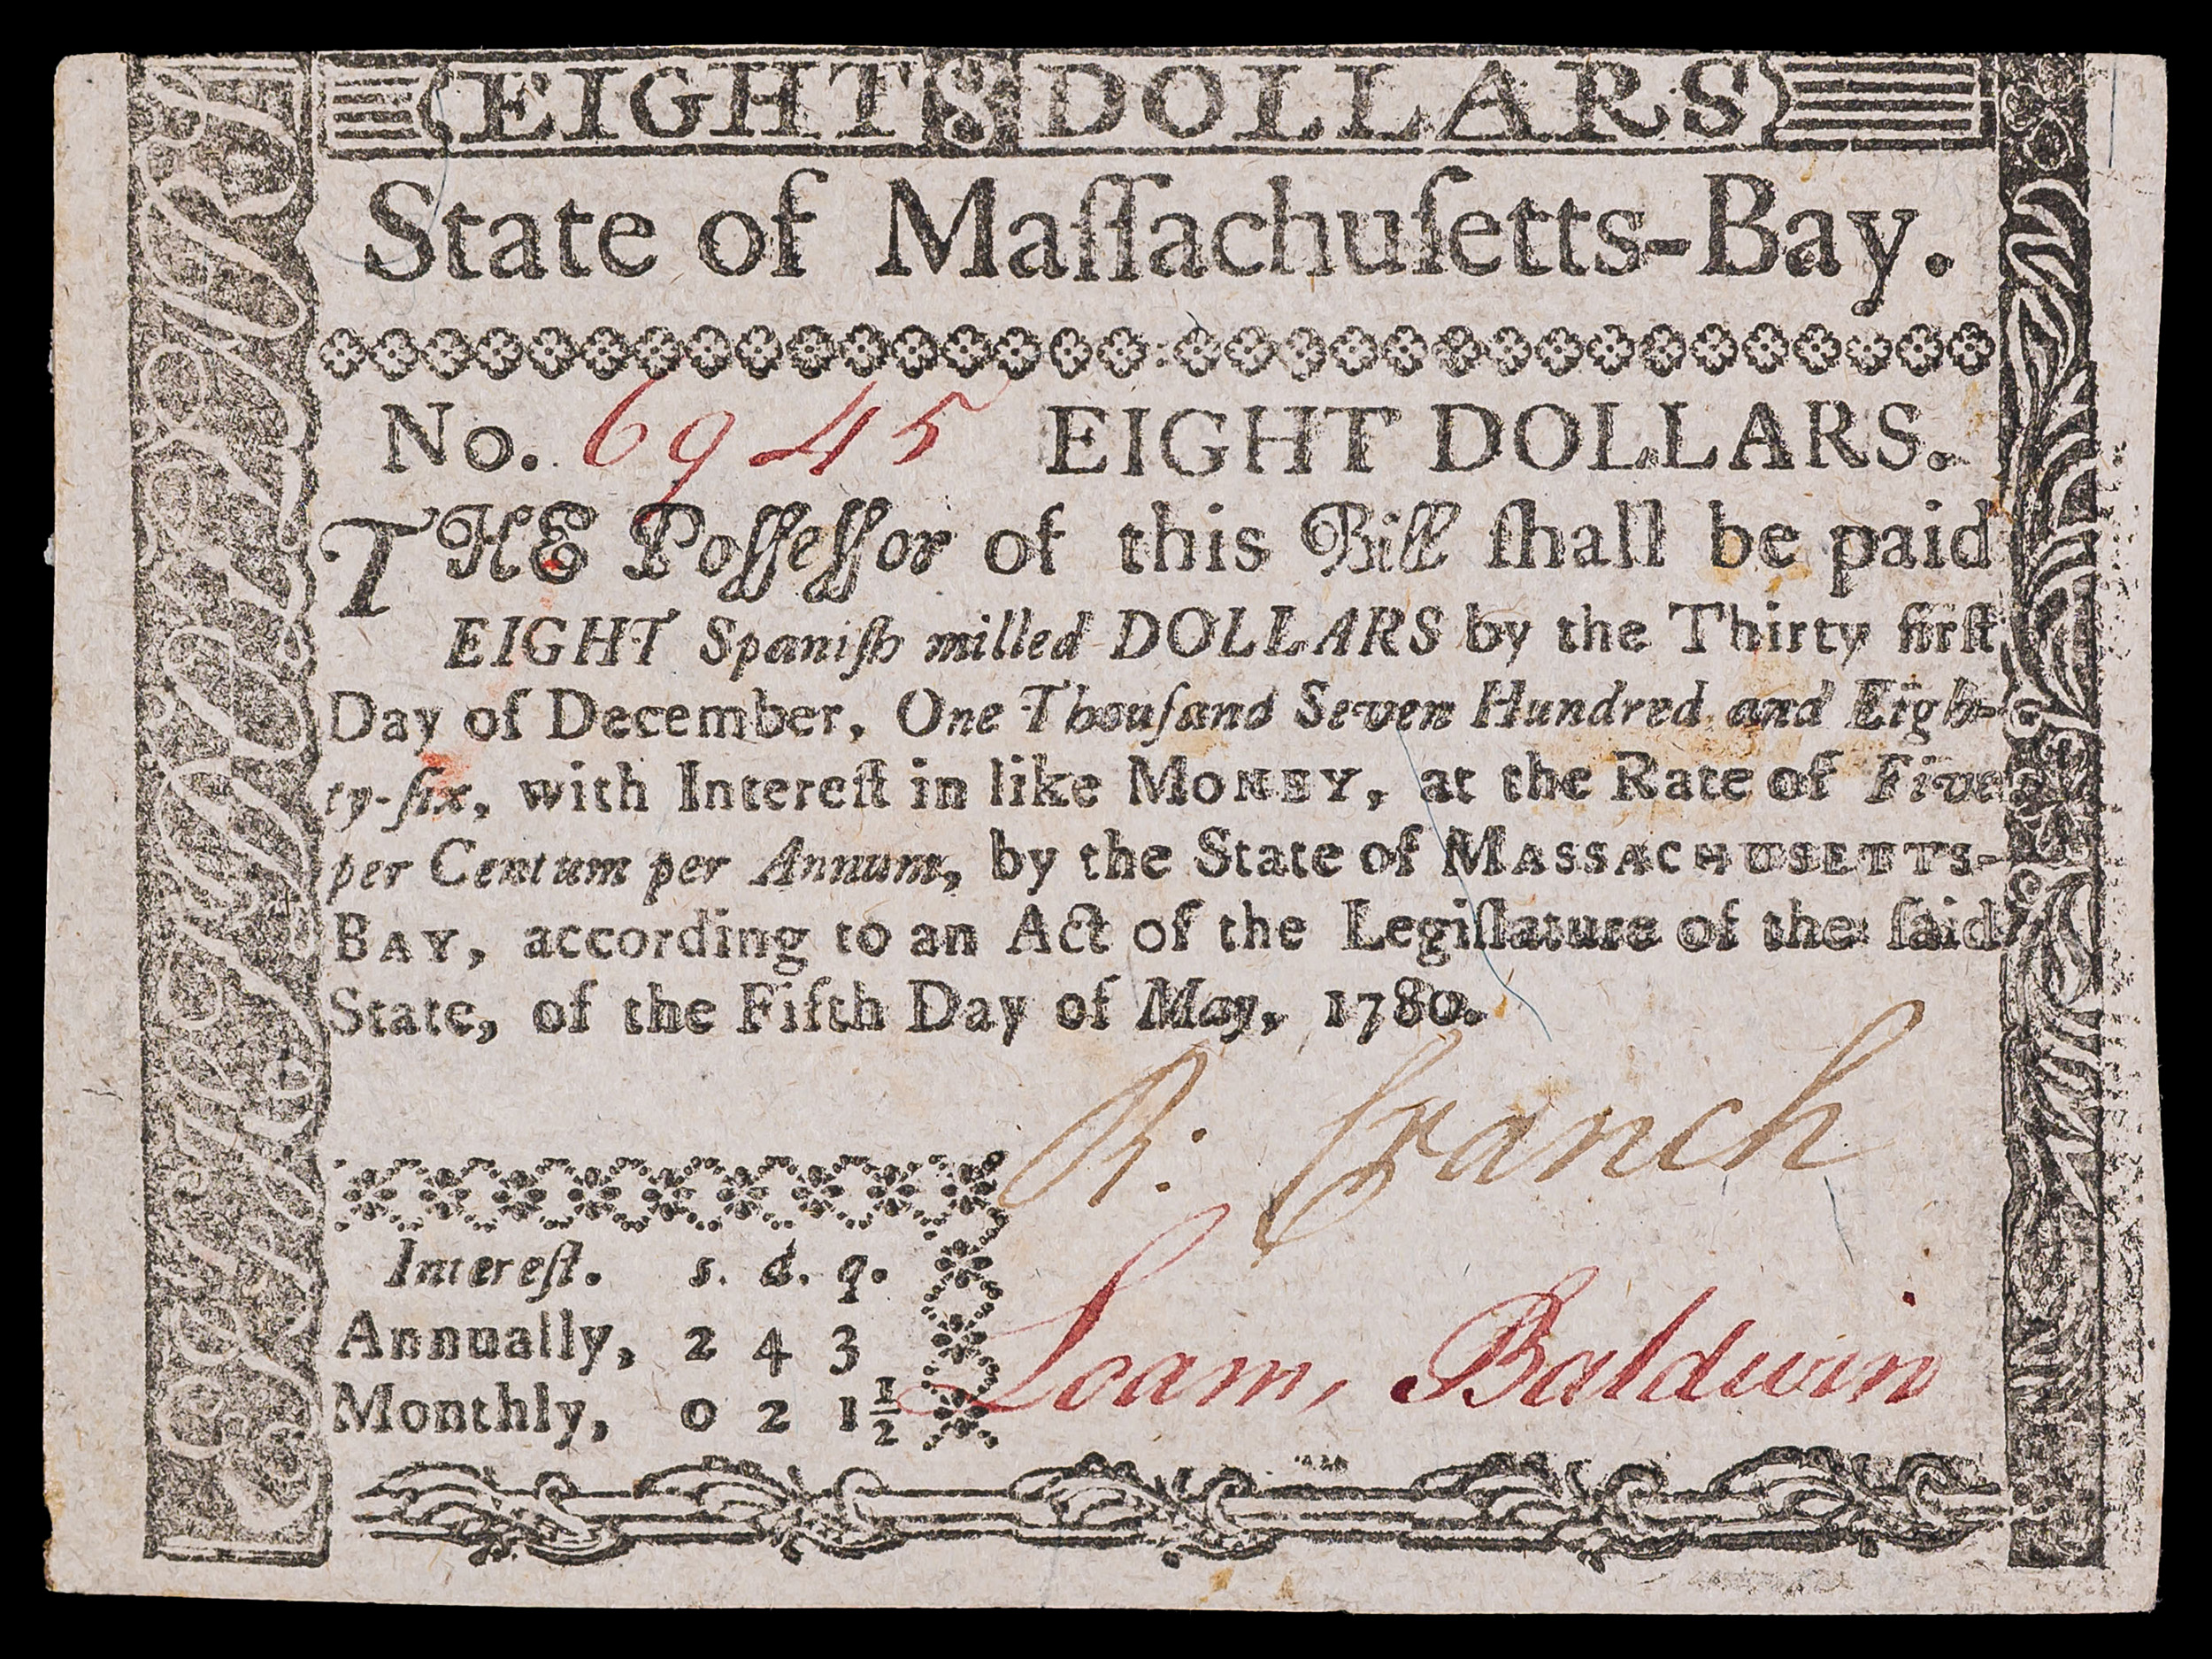 EIGHT 8 DOLLARS
State of Maſſachuſetts-Bay.
No. 6945 EIGHT DOLLARS.
THE Poſſeſſor of this Bill ſhall be paid
EIGHT Spaniſh milled DOLLARS by the Thirty firſt
Day of December, One Thouſand Seven Hundred and Eigh-
ty-ſix, with Intereſt in like MONEY, at the Rate of Five
per Centum per Annum, by the State of MASSACHUSETTS-
BAY, according to an Act of the Legiſlature of the ſaid
State, of the Fifth Day of May, 1780.
R: Cranch
Intereſt. s. d. q.
Annually, 2 4 3
Monthly, 0 2 1½
Loam, Baldwin